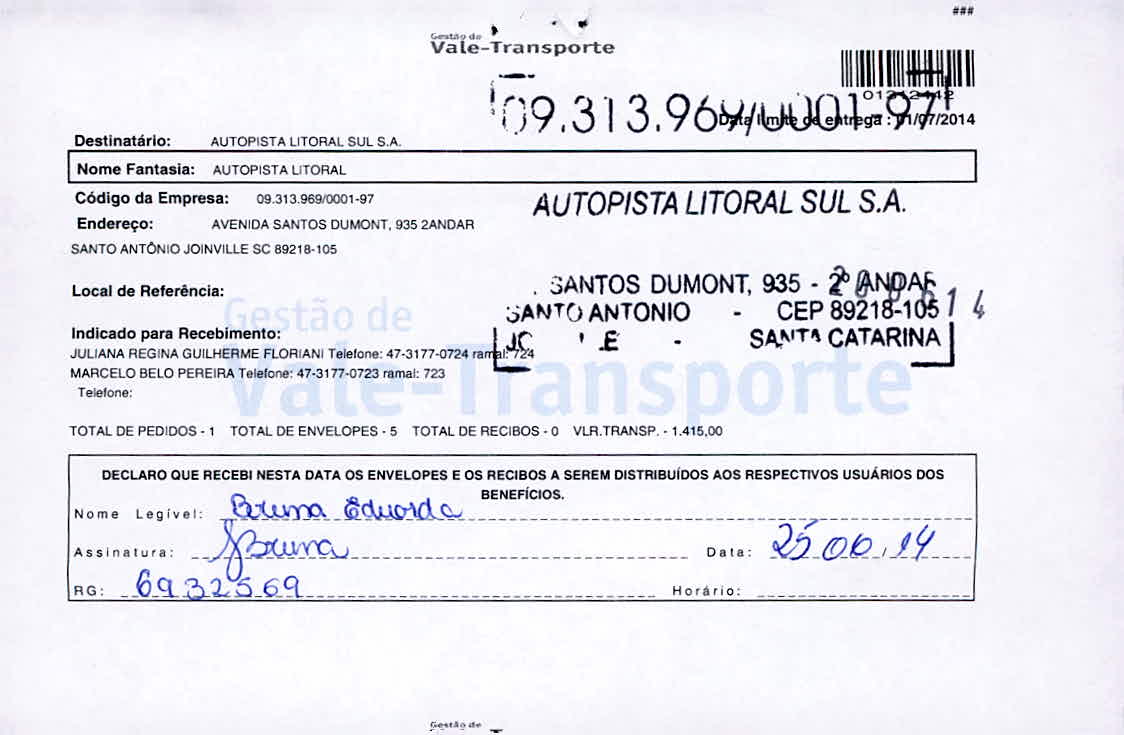 ###
Gestão de
Vale-Transporte
01242442
09.313.969/0001-97
Data limite de entrega : 01/07/2014
Destinatário: AUTOPISTA LITORAL SUL S.A.
Nome Fantasia: AUTOPISTA LITORAL
Código da Empresa: 09.313.969/0001-97
AUTOPISTA LITORAL SUL S.A.
Endereço: AVENIDA SANTOS DUMONT, 935 2ANDAR
SANTO ANTÔNIO JOINVILLE SC 89218-105
Local de Referência:
. SANTOS DUMONT, 935 - 2º ANDAR
SANTO ANTONIO - CEP 89218-105
SANTA CATARINA
Gestão de
Vale-Transporte
Indicado para Recebimento:
JULIANA REGINA GUILHERME FLORIANI Telefone: 47-3177-0724 ramal: 724
MARCELO BELO PEREIRA Telefone: 47-3177-0723 ramal: 723
Telefone:
TOTAL DE PEDIDOS - 1 TOTAL DE ENVELOPES - 5 TOTAL DE RECIBOS - 0 VLR.TRANSP. - 1.415,00
DECLARO QUE RECEBI NESTA DATA OS ENVELOPES E OS RECIBOS A SEREM DISTRIBUÍDOS AOS RESPECTIVOS USUÁRIOS DOS
BENEFÍCIOS.
Nome Legível: Bruna Eduarda
Assinatura: Bruna Data: 25/06/14
RG: 6932569 Horário:
Gestão de